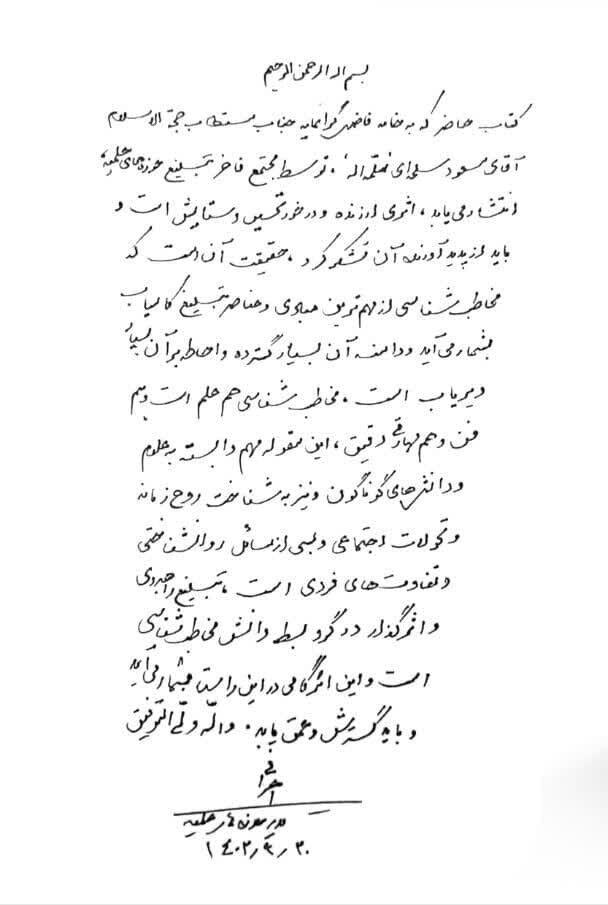 بسم الله الرحمن الرحیم
کتاب حاضر که به خامه فاضل گرانمایه جناب مستطاب حجة الاسلام
آقای مسعود سلم‌ای ، توسط مجتمع فاخر تبلیغ حوزه‌های علمیه
انتشار می یابد ، اثری ارزنده و درخور تحسین و ستایش است و
باید از پدیدآورنده آن تشکر کرد ، حقیقت آن است که
مخاطب شناسی از مهم ترین مبادی و عناصر تبلیغ کامیاب
بشمار می آید و دامنه آن بسیار گسترده و احاطه بر آن بسیار
دیریاب است ، مخاطب شناسی هم علم است و هم
فن و هم مهارتی دقیق ، این مقوله مهم وابسته به علوم
و دانش های گوناگون و نیز به شناخت روح زمانه
و تحولات اجتماعی و بسی از مسائل روانشناختی
و تفاوت های فردی است ، تبلیغ راهبردی
و اثرگذار در گرو بسط دانش مخاطب شناسی
است و این اثر گامی در این راستا بشمار می آید
و باید گسترش و عمق یابد . والله ولی التوفیق
اعرافی
مدیر حوزه های علمیه
۱۴۰۲٫۹٫۳۰